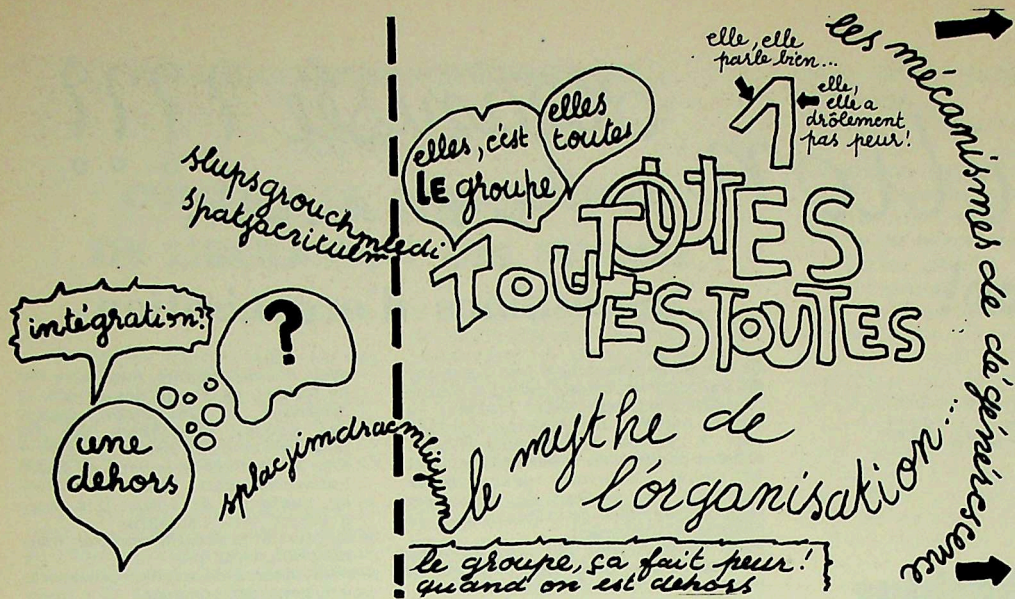 slupsgrouchmledi
spatzacrituem
intégration?
?
une
dehors
elles, c'est
LE groupe
elles
toutes
elle, elle
parle bien...
1
elle,
elle a
drôlement
pas peur!
TOUTES
TOUTES
TOUTES
le mythe de
l'organisation...
le groupe, ça fait peur!
quand on est dehors
les mécanismes de dégénérescence